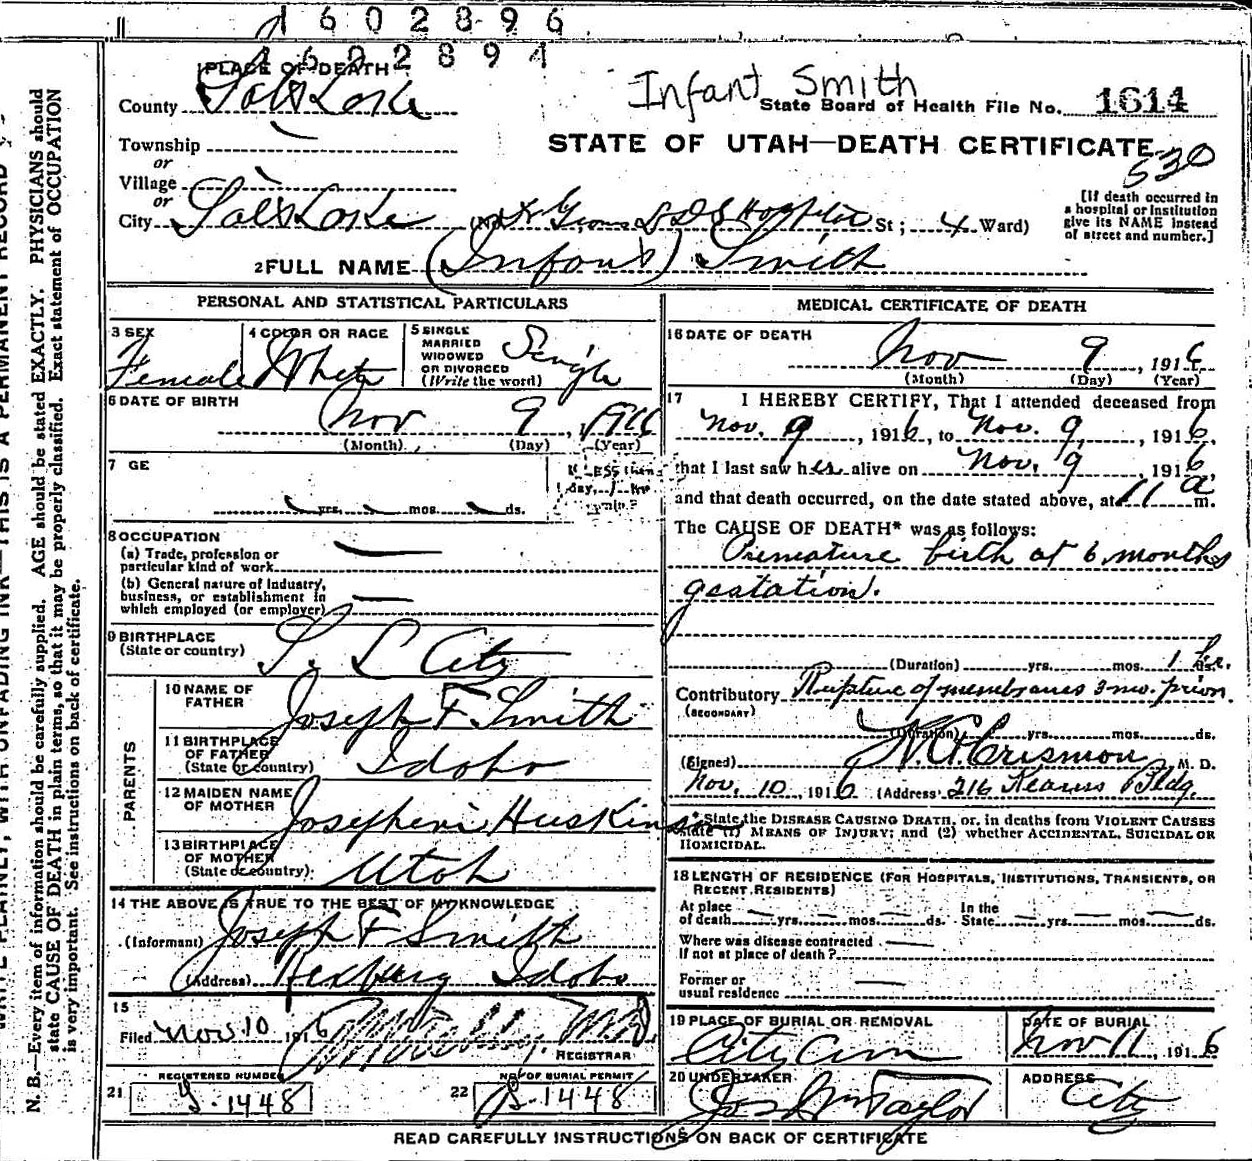 1602896
1602894
Infant Smith
PLACE OF DEATH
County Salt Lake
State Board of Health File No. 1614
Township
or
Village
or
STATE OF UTAH—DEATH CERTIFICATE
530
City Salt Lake (No. Dr Groves L D S Hospital St; 4 Ward)
[If death occurred in
a hospital or institution
give its NAME instead
of street and number.]
2 FULL NAME (Infant) Smith
PERSONAL AND STATISTICAL PARTICULARS
3 SEX
Female
4 COLOR OR RACE
White
5 SINGLE
MARRIED
WIDOWED
OR DIVORCED
(Write the word)
Single
6 DATE OF BIRTH
Nov 9, 1916
(Month) (Day) (Year)
7 GE
yrs. mos. ds.
8 OCCUPATION
(a) Trade, profession or
particular kind of work
(b) General nature of Industry,
business, or establishment in
which employed (or employer)
9 BIRTHPLACE
(State or country)
S. L City
PARENTS
10 NAME OF
FATHER
Joseph F Smith
11 BIRTHPLACE
OF FATHER
(State or country)
Idaho
12 MAIDEN NAME
OF MOTHER
Josephine Huskinson
13 BIRTHPLACE
OF MOTHER
(State or country)
Utah
14 THE ABOVE IS TRUE TO THE BEST OF MY KNOWLEDGE
(Informant) Joseph F Smith
(Address) Rexburg Idaho
15
Filed Nov 10 1916
REGISTRAR
REGISTERED NUMBER
21 S-1448
NO. OF BURIAL PERMIT
22 S-1448
MEDICAL CERTIFICATE OF DEATH
16 DATE OF DEATH
Nov 9, 1916
(Month) (Day) (Year)
17 I HEREBY CERTIFY, That I attended deceased from
Nov. 9, 1916, to Nov. 9, 1916,
that I last saw her alive on Nov. 9 1916,
and that death occurred, on the date stated above, at 11 a m.
The CAUSE OF DEATH* was as follows:
Premature birth at 6 months
gestation.
(Duration) yrs. mos. 1 hr.
Contributory Rupture of membranes 3 mo. prior.
(SECONDARY)
(Duration) yrs. mos. ds.
(Signed) Crismon, M. D.
Nov. 10, 1916 (Address) 216 Kearns Bldg.
* State the DISEASE CAUSING DEATH, or, in deaths from VIOLENT CAUSES
state (1) MEANS OF INJURY; and (2) whether ACCIDENTAL, SUICIDAL OR
HOMICIDAL.
18 LENGTH OF RESIDENCE (FOR HOSPITALS, INSTITUTIONS, TRANSIENTS, OR
RECENT RESIDENTS)
At place
of death yrs. mos. ds.
In the
State yrs. mos. ds.
Where was disease contracted
If not at place of death?
Former or
usual residence
19 PLACE OF BURIAL OR REMOVAL
City Cem
DATE OF BURIAL
Nov 11, 1916
20 UNDERTAKER
Jos Wm Taylor
ADDRESS
City
READ CAREFULLY INSTRUCTIONS ON BACK OF CERTIFICATE
N. B.—Every item of information should be carefully supplied. AGE should be stated EXACTLY. PHYSICIANS should
state CAUSE OF DEATH in plain terms, so that it may be properly classified. Exact statement of OCCUPATION
is very important. See instructions on back of certificate.